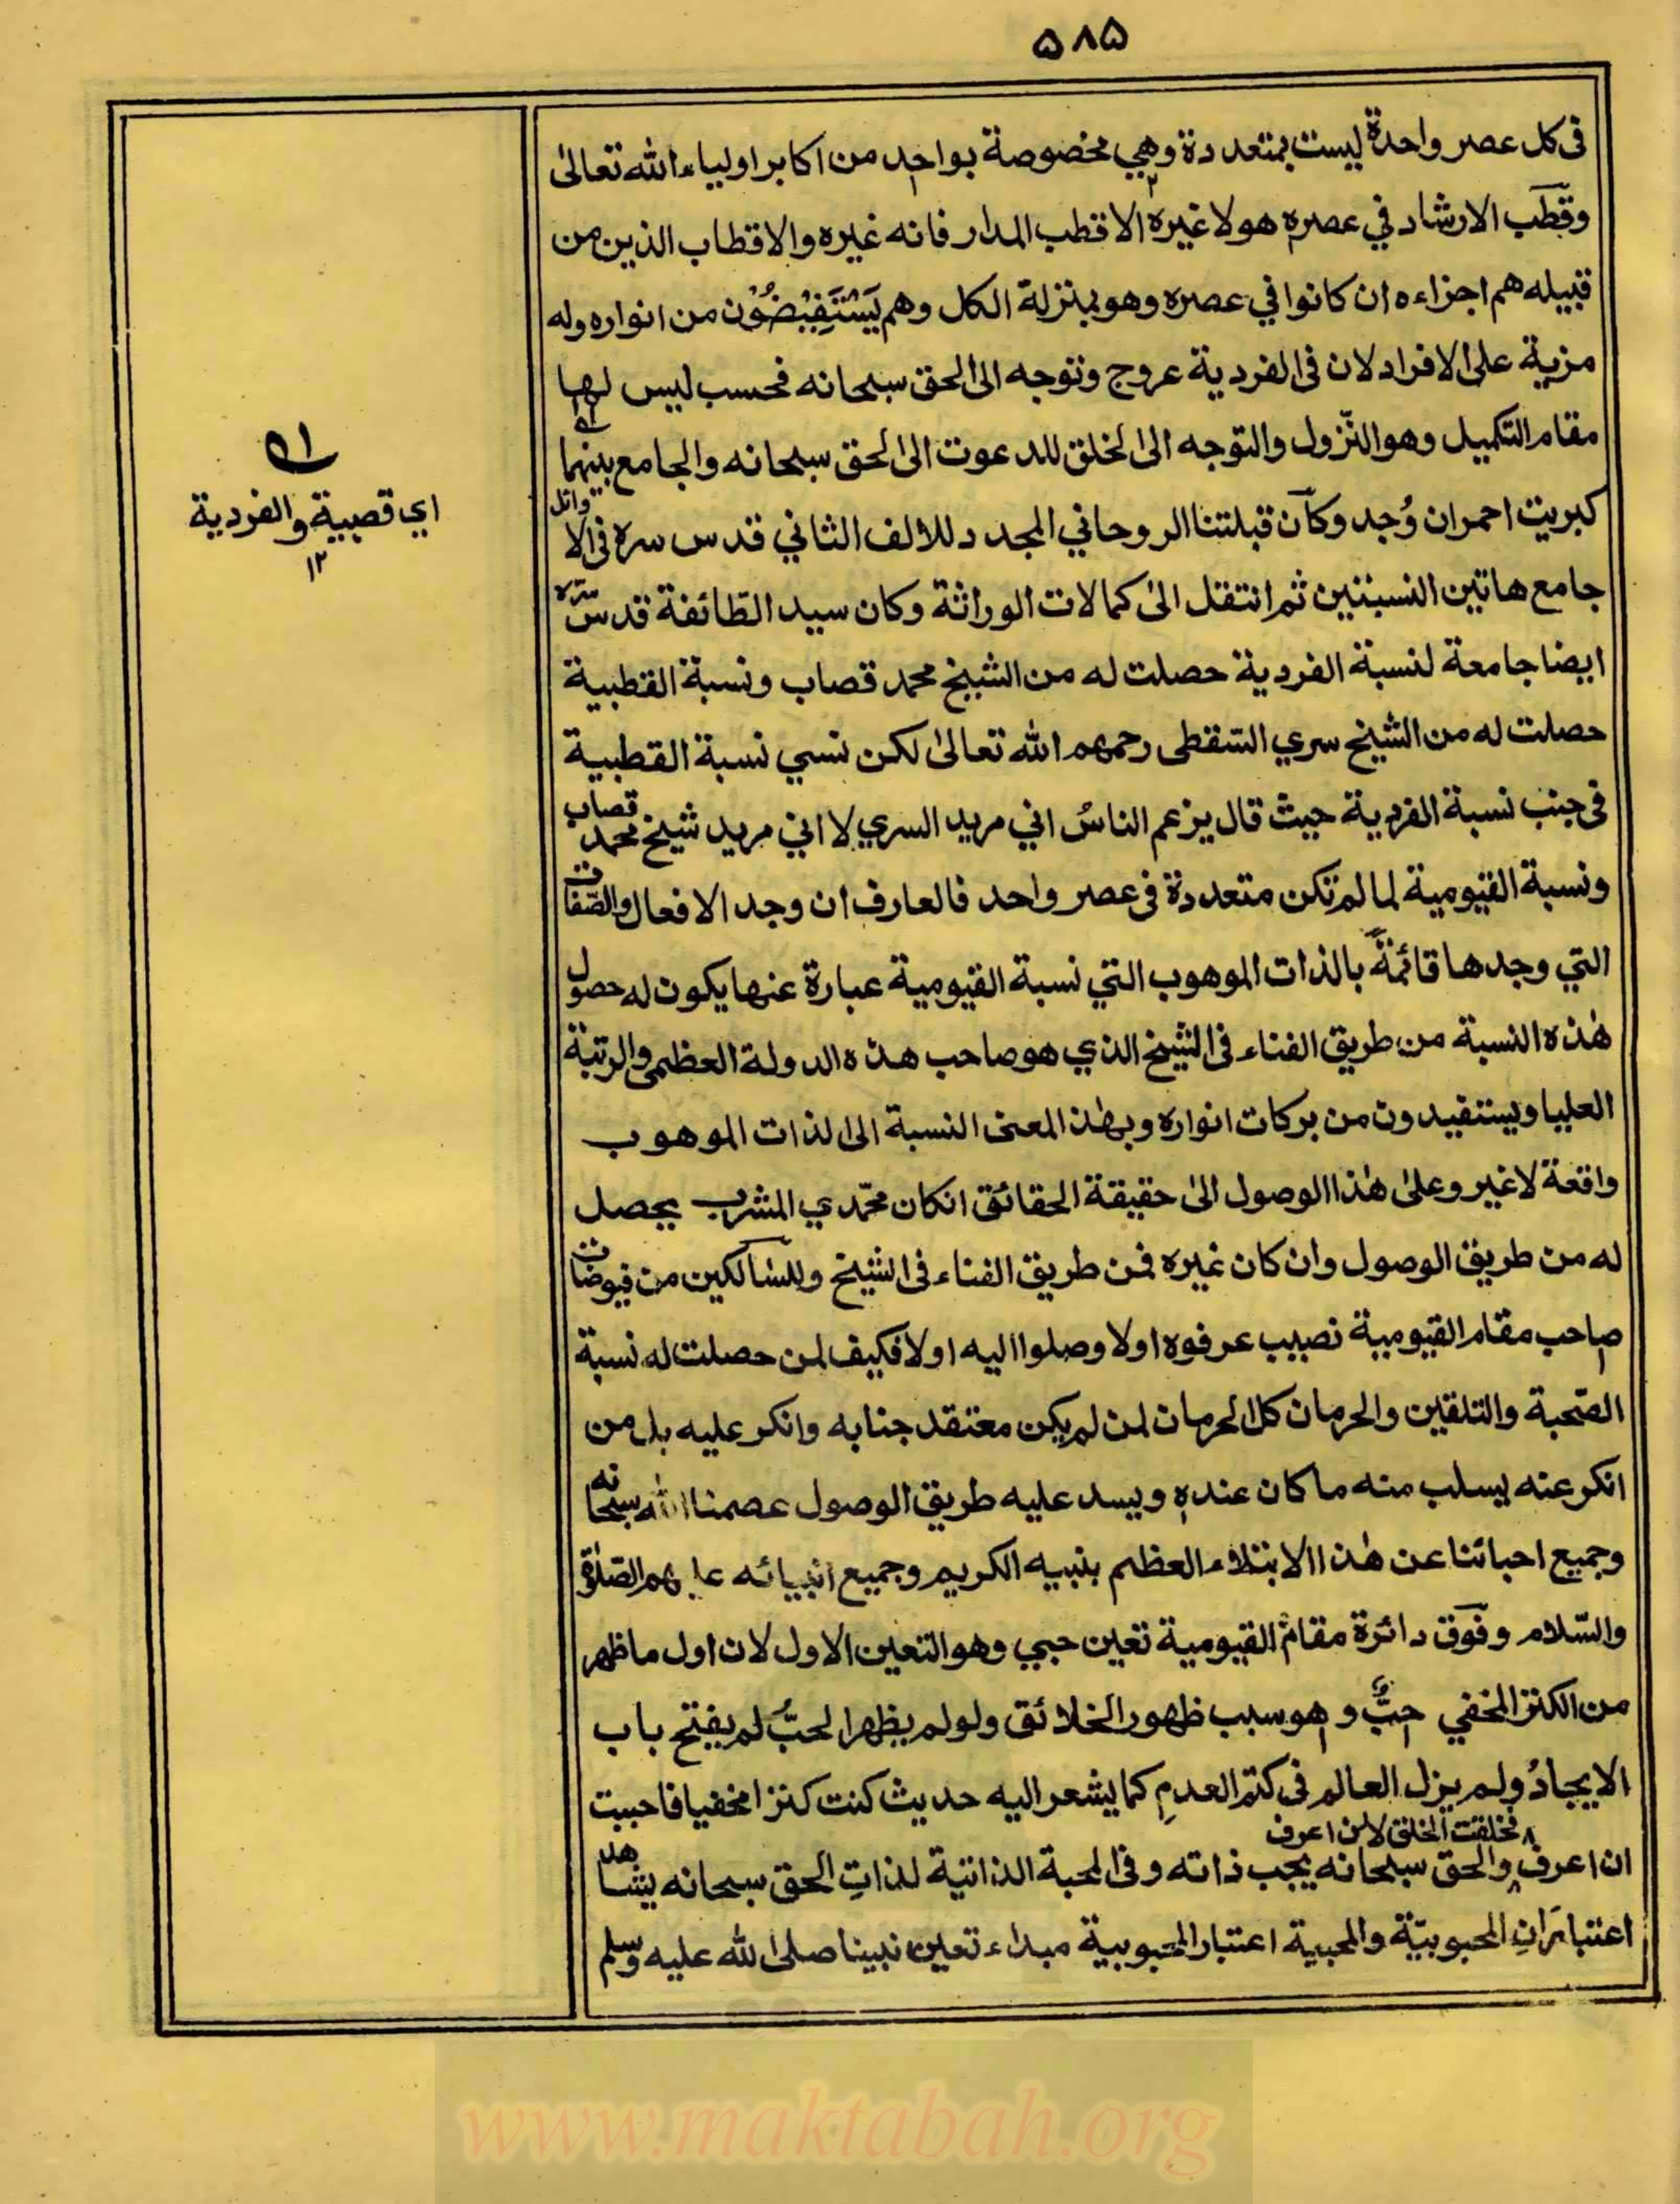 ۵۸۵
فی کل عصر واحدة لیست بمتعددة وهي مخصوصة بواحد من اکابر اولیاء الله تعالیٰ
وقطب الارشاد في عصره هو لا غیره الا قطب المدار فانه غیره والاقطاب الذین من
قبیله هم اجزاءه ان کانوا في عصره وهو بمنزلة الکل وهم یَسْتَفِیْضُوْن من انواره وله
مزیة علی الافراد لان فی الفردیة عروج وتوجه الی الحق سبحانه فحسب لیس لها
مقام التکمیل وهو النّزول والتوجه الی الخلق للدعوت الی الحق سبحانه والجامع بینهما
کبریت احمر ان وُجد وکان قبلتنا الروحاني المجدد للالف الثاني قدس سره فی الاوائل
جامع هاتین النسبتین ثم انتقل الیٰ کمالات الوراثة وکان سید الطّائفة قدس سّره
ایضا جامعة لنسبة الفردیة حصلت له من الشیخ محمد قصاب ونسبة القطبیة
حصلت له من الشیخ سري السّقطی رحمهم الله تعالیٰ لکن نسي نسبة القطبیة
فی جنب نسبة الفردیة حیث قال یزعم الناسُ اني مرید السري لا اني مرید شیخ محمد قصاب
ونسبة القیومیة لما لم تکن متعددة فی عصر واحد فالعارف ان وجد الافعال والصّفات
التي وجدها قائمةً بالذات الموهوب التي نسبة القیومیة عبارة عنها یکون له حصول
هٰذه النسبة من طریق الفناء فی الشیخ الذي هو صاحب هذه الدولة العظمی والرتبة
العلیا ویستفیدون من برکات انواره وبهٰذ المعنی النسبة الی الذات الموهوب
واقعة لا غیر وعلیٰ هٰذا الوصول الیٰ حقیقة الحقائق انکان محمّدي المشرب یحصل
له من طریق الوصول وان کان غیره فمن طریق الفناء فی الشیخ وللسّالکین من فیوضات
صاحب مقام القیومیة نصیب عرفوه اولا وصلوا الیه اولا فکیف لمن حصلت له نسبة
الصّحبة والتلقین والحرمان کل الحرمان لمن لم یکن معتقد جنابه وانکر علیه بل من
انکر عنه یسلب منه ما کان عنده ویسد علیه طریق الوصول عصمنا الله سبحانه
وجمیع احبائنا عن هٰذا الابتلاء العظم بنبیه الکریم وجمیع انبیائه علیهم الصّلوٰة
والسّلام وفوق دائرة مقام القیومیة تعین حبي وهو التعین الاول لان اول ما ظهر
من الکنز المخفي حبٌّ وهو سبب ظهور الخلائق ولو لم یظهر الحبُّ لم یفتح باب
الایجادُ ولم یزل العالم فی کتم العدمِ کما یشعر الیه حدیث کنت کنزا مخفیا فاحببت
ان اعرف فخلقت الخلق لان اعرف والحق سبحانه یحب ذاته وفی المحبة الذاتیة لذاتِ الحق سبحانه یشاهد
اعتبارَانِ المحبوبیّة والمحبیة اعتبار المحبوبیة مبداء تعین نبینا صلی الله علیه وسلم
اي قصبیة والفردیة
١٢
www.maktabah.org